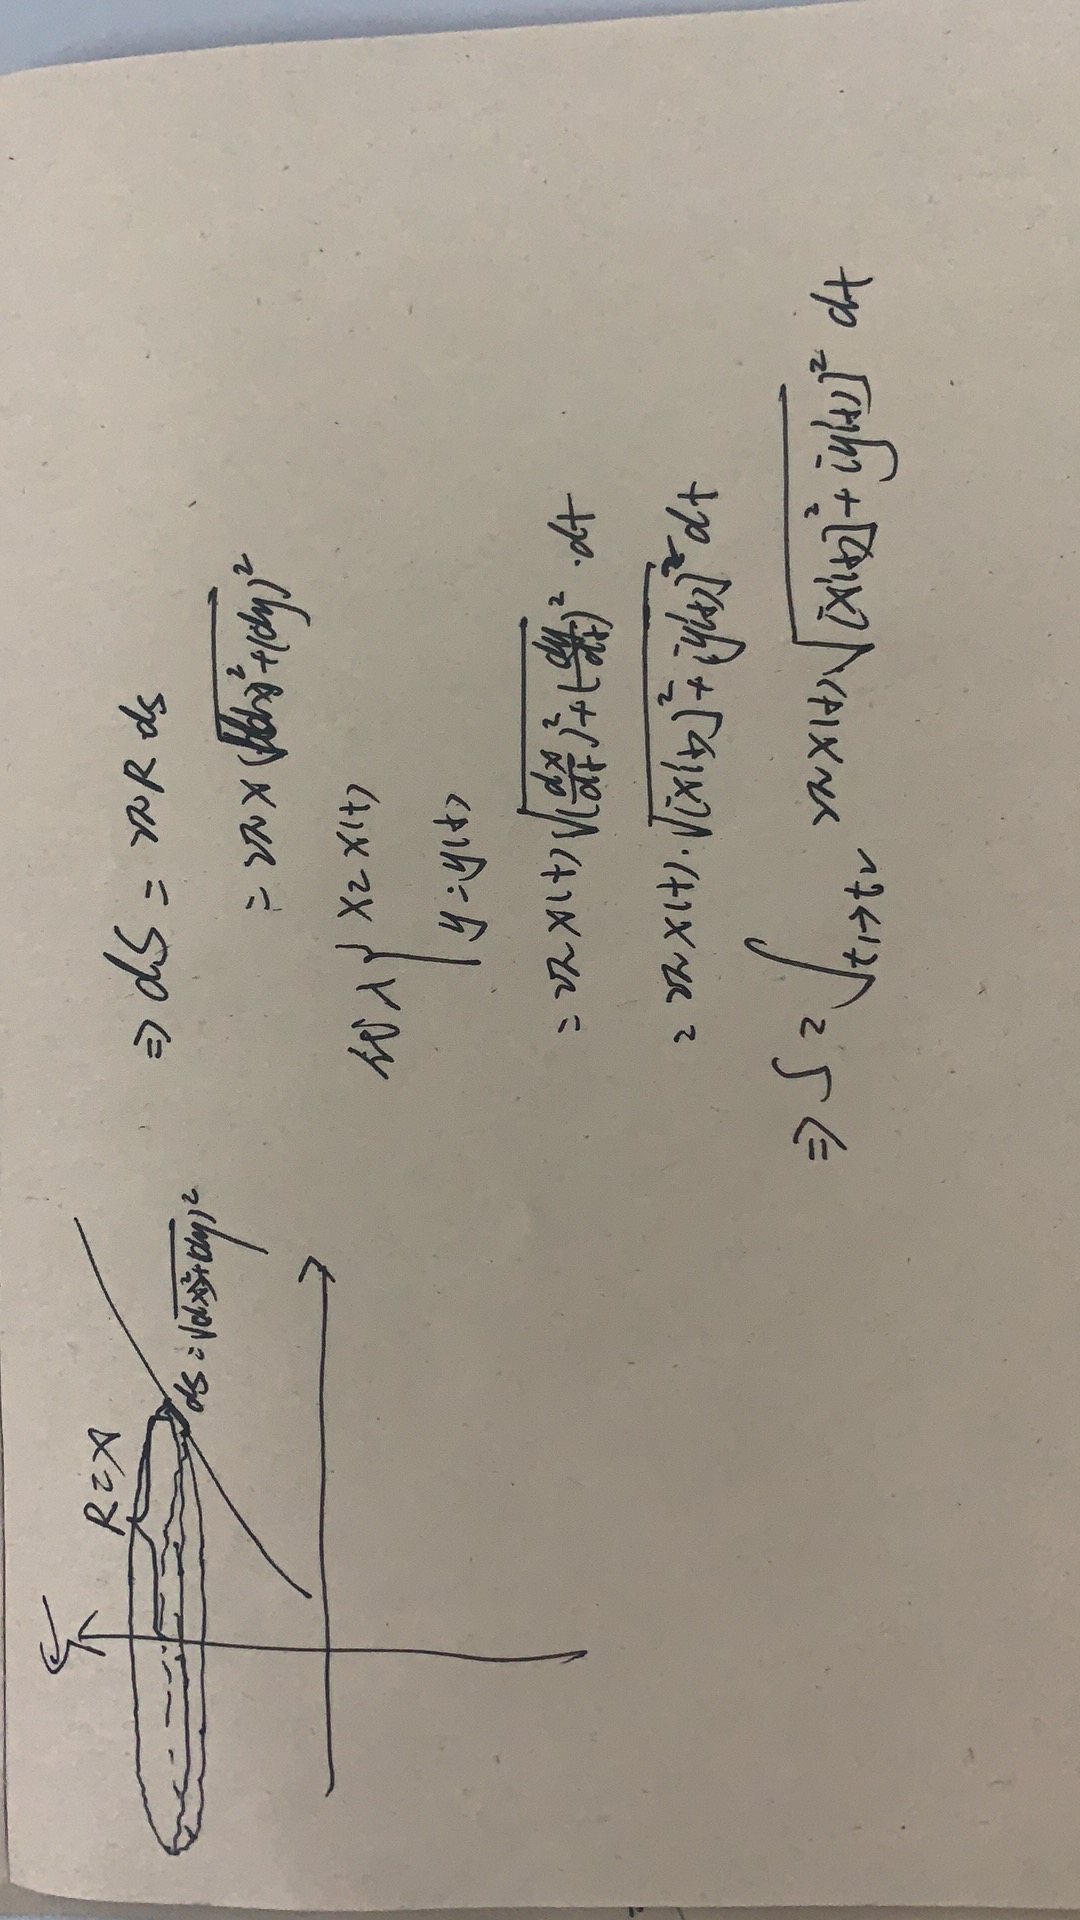 R=x
ds=√(dx)²+(dy)²
⇒ dS = 2πR ds
= 2πx√(dx)²+(dy)²
代入{x=x(t)
y=y(t)
= 2πx(t)√(dx/dt)²+(dy/dt)² ·dt
= 2πx(t)·√[x'(t)]²+[y'(t)]² dt
⇒ S=∫t₁→t₂ 2πx(t)√[x'(t)]²+[y'(t)]² dt